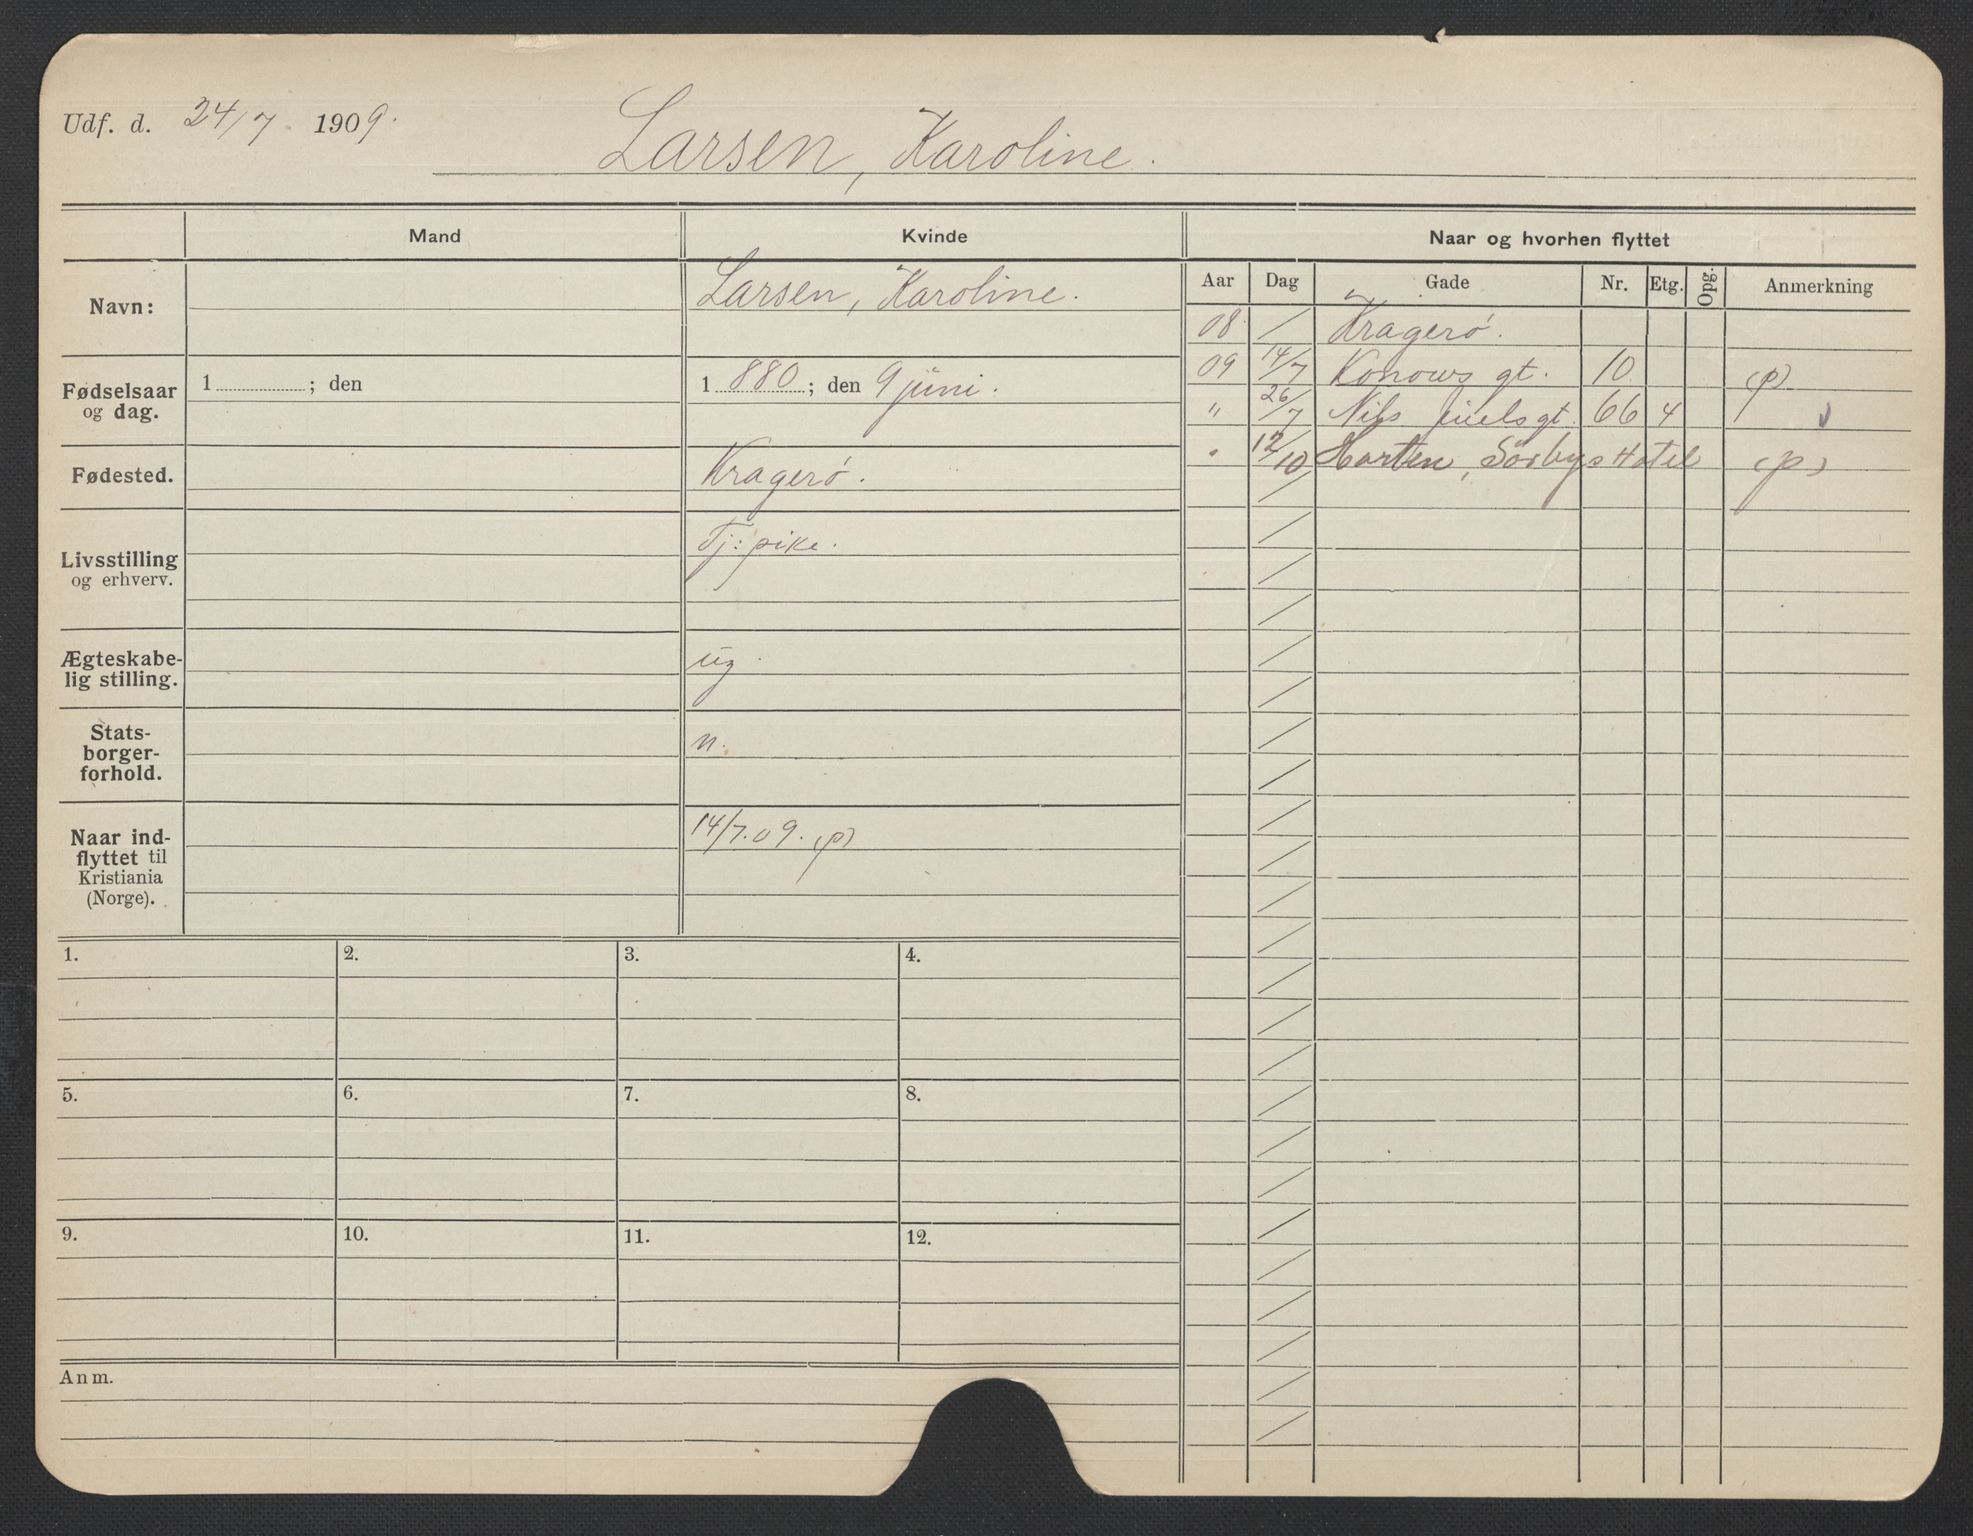 Udf. d. 24/7 1909.
Larsen, Karoline.
Mand
Kvinde
Naar og hvorhen flyttet
Aar Dag Gade Nr. Etg. Opg. Anmerkning
Navn:
Larsen, Karoline.
Fødselsaar og dag.
1 ; den
1 880 ; den 9 juni.
Fødested.
Kragerø.
Livsstilling og erhverv.
Tj: pike.
Ægteskabe-
lig stilling.
ug.
Stats-
borger-
forhold.
n.
Naar ind-
flyttet til
Kristiania
(Norge).
14/7.09. (p)
08 / Kragerø.
09 14/7 Konows gt. 10 (p)
" 26/7 Nils juels gt. 66 4
" 12/10 Horten, Sørbys Hotel (p)
1. 2. 3. 4.
5. 6. 7. 8.
9. 10. 11. 12.
Anm.